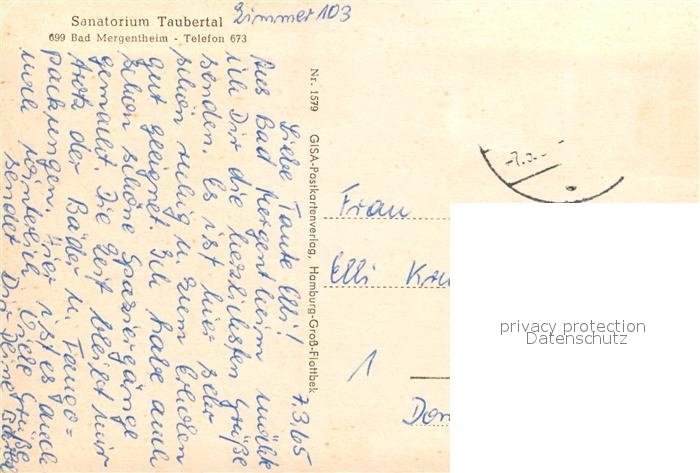 Sanatorium Taubertal
Zimmer 103
699 Bad Mergentheim - Telefon 673
7.3.65
Liebe Tante Elli!
Aus Bad Mergentheim möchte
ich Dir die herzlichsten Grüße
senden. Es ist hier sehr
schön ruhig u. zum Erholen
gut geeignet. Ich habe auch
schon schöne Spaziergänge
gemacht. Die Zeit bleibt mir
trotz der Bäder u. Fango=
packungen. Hier ist es auch
noch winterlich. Viele Grüße
sendet Dir Deine
Nr. 1579 GISA-Postkartenverlag, Hamburg-Groß-Flottbek
-7.3.-
Frau
Elli
1
privacy protection
Datenschutz